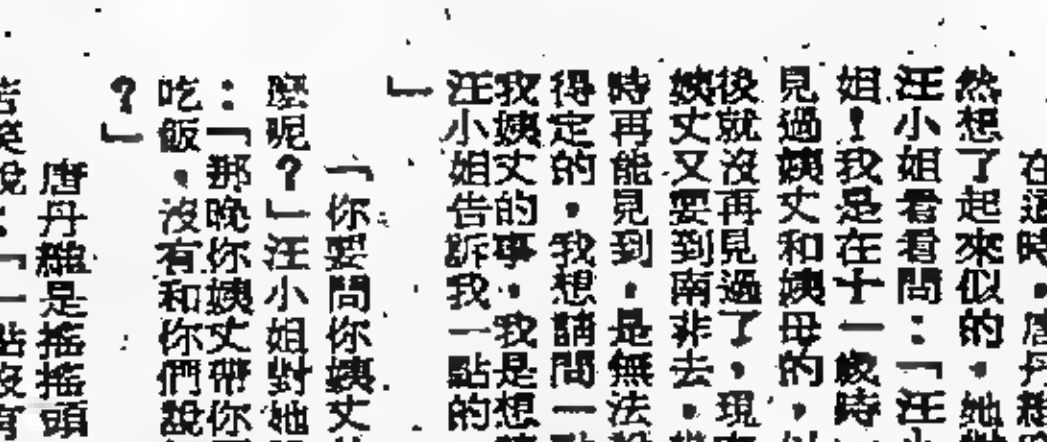 在這時，唐丹
然想了起來似的，她
汪小姐看看問：「汪小
姐！我是在十一歲時
見過姨丈和姨母的，以
後就沒再見過了，現
姨丈又要到南非去，
時再能見到，是無法
得定的，我想請問一
我姨丈的事，我是想
汪小姐告訴我一點的
」
「你要問你姨丈
麼呢？」汪小姐對她
：「那晚你姨丈帶你
吃飯，沒有和你們說
？」
唐丹離是搖搖頭
苦笑說：「一點沒有